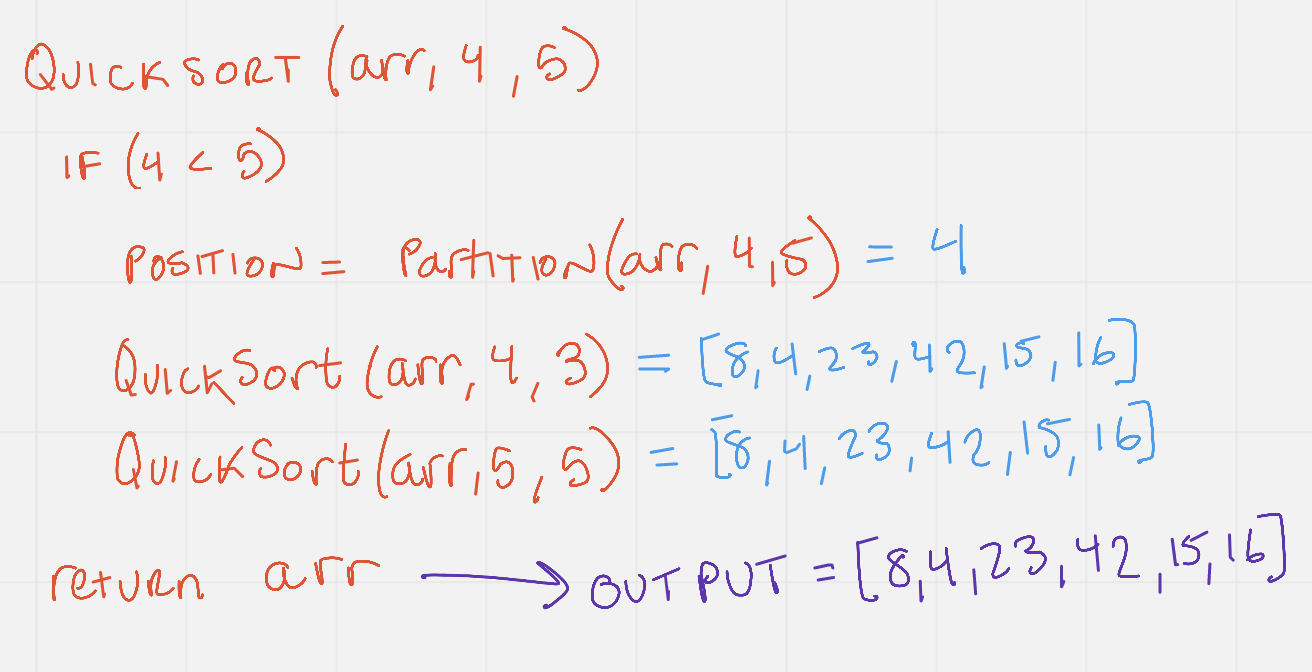 QUICKSORT (arr, 4, 5)
IF (4 < 5)
POSITION = PartITION(arr, 4, 5) = 4
QuickSort (arr, 4, 3) = [8, 4, 23, 42, 15, 16]
QuickSort (arr, 5, 5) = [8, 4, 23, 42, 15, 16]
return arr → OUTPUT = [8, 4, 23, 42, 15, 16]